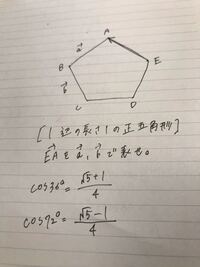 A
a⃗
B
E
b⃗
C
D
[1辺の長さ1の正五角形]
E⃗A⃗をa⃗, b⃗で表せ。
cos36°= √5+1/4
cos72°= √5-1/4